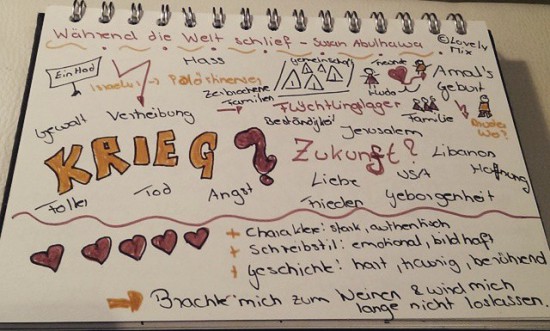 Während die Welt schlief - Susan Abulhawa
© Lovely Mix
Ein Hod
Hass
Israelis -> Palästinenser
Gemeinschaft
Theorie
Amal's Geburt
Zerbrochene Familien
Huda
Gewalt
Vertreibung
Flüchtlingslager
Familie
Bruder Wo?
Beständigkeit
Jerusalem
KRIEG?
Zukunft?
Libanon
Hoffnung
Liebe
USA
Folter
Tod
Angst
Frieden
Geborgenheit
+ Charaktere: stark, authentisch
+ Schreibstil: emotional, bildhaft
+ Geschichte: hart, traurig, berührend
Brachte mich zum Weinen & wird mich
lange nicht loslassen.